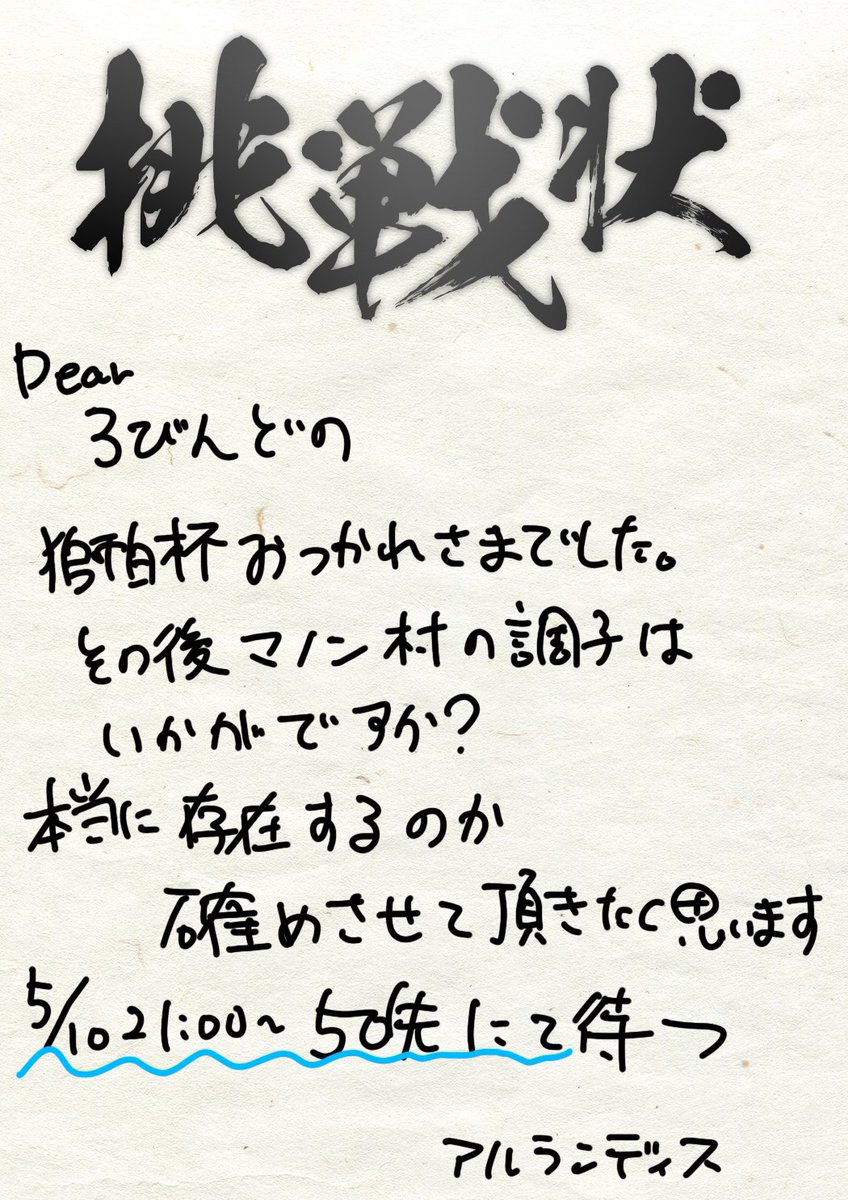 挑戦状
Dear
ろびんどの
狛杯おつかれさまでした。
その後マノン村の調子は
いかがですか?
本当に存在するのか
確めさせて頂きたく思います
5/10 21:00~ 50先にて待つ
アルランディス